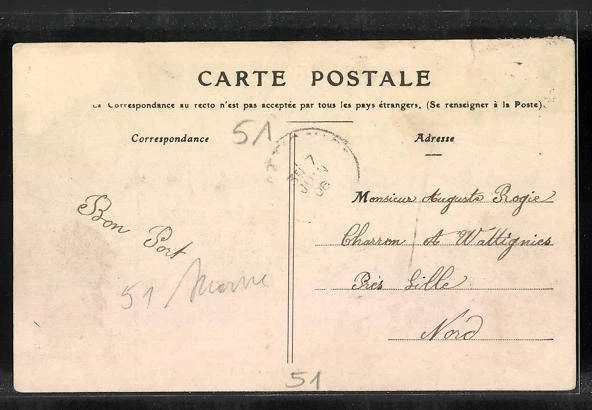 CARTE POSTALE
La Correspondance au recto n'est pas acceptée par tous les pays étrangers. (Se renseigner à la Poste).
Correspondance
51
Adresse
7
06
Monsieur Auguste Rogie
Charron A Wattignies
Près Lille
Nord
Bon Port
51 Marne
51